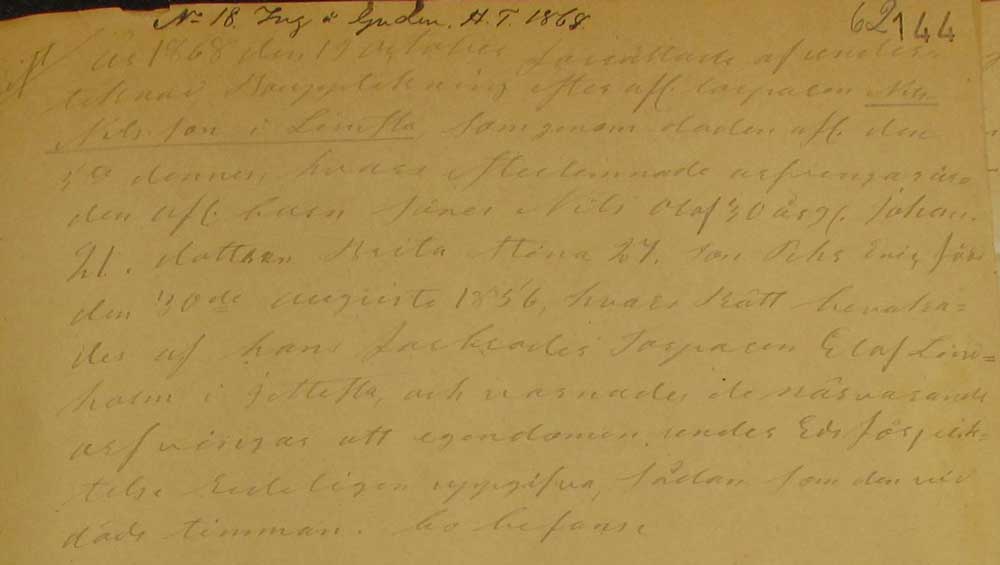 No 18. Ing å Guden. H.T. 1868.
62 144
År 1868 den 19 October förrättade af undertecknad Bouppteckning efter afl. torparen Nils
Nilsson i Limsta, som genom döden afl. den
5te dennes, hvars efterlemnade arfvingar äro
den afl. barn söner Nils Olof 30 år gl. Johan
21. dottren Brita Stina 27. son Pehr Eric född
den 30de augusti 1856, hvars Rätt bevaka-
des af hans farbroder Torparen Olof Lind=
holm i, och varnades de närvarande
arfvingar att egendomen under Eds förplik-
telse Redeligen uppgifva, sådan som den vid
döds timman. bo befans,